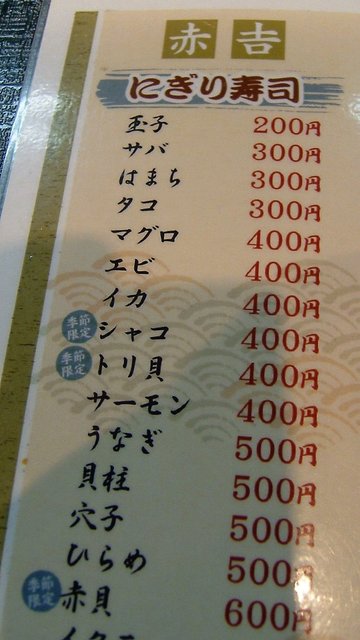 赤吉
にぎり寿司
玉子 200円
サバ 300円
はまち 300円
タコ 300円
マグロ 400円
エビ 400円
イカ 400円
季節限定 シャコ 400円
季節限定 トリ貝 400円
サーモン 400円
うなぎ 500円
貝柱 500円
穴子 500円
ひらめ 500円
季節限定 赤貝 600円